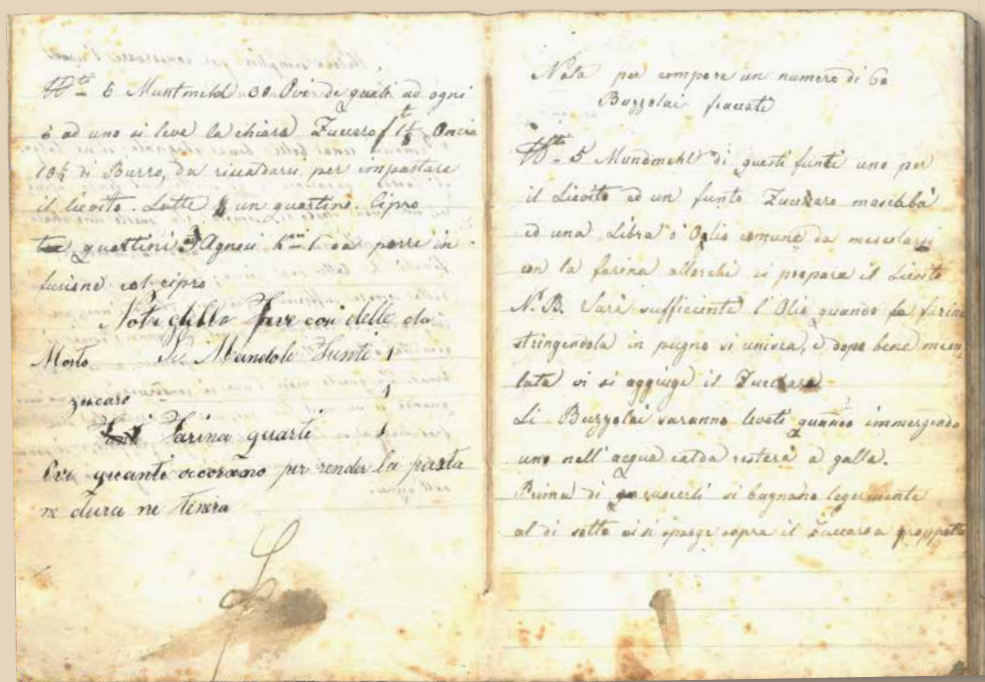 6 Muntmehl 30 Ovi de quali ad ogni
6 ad uno si leva la chiara Zuccaro f 1 1/2 Oncia
10 1/2 di Burro, da riscaldarsi per impastare
il lievito. Latte un quartino. Cipro
quartini 3 Agnesi 1 da porre in
fusione col cipro
Nota delle Fave così dette da
Morto Mandole Funti 1
zucaro 1
Farina quarti 1
Ovi quanti occorrono per render la pasta
ne dura ne tenera
Nota per compore un numero di 60
Buzzolai fiaccati
5 Mundmehl di questi funti uno per
il Lievito ed un funto Zuccaro mascabà
ed una Libra d'Oglio comune da mescolarsi
con la farina allorchè si prepara il Lievito
N. B. Sarà sufficiente l'Olio quando la farina
stringendola in pugno si unirà, e dopo bene mesco
lata vi si aggiunge il Zuccaro
Li Buzzolai saranno levati quando immergendo
uno nell'acqua calda resterà a galla.
Prima di cuocerli si bagnano legermente
al di sotto vi si sparge sopra il zuccaro a groppetti